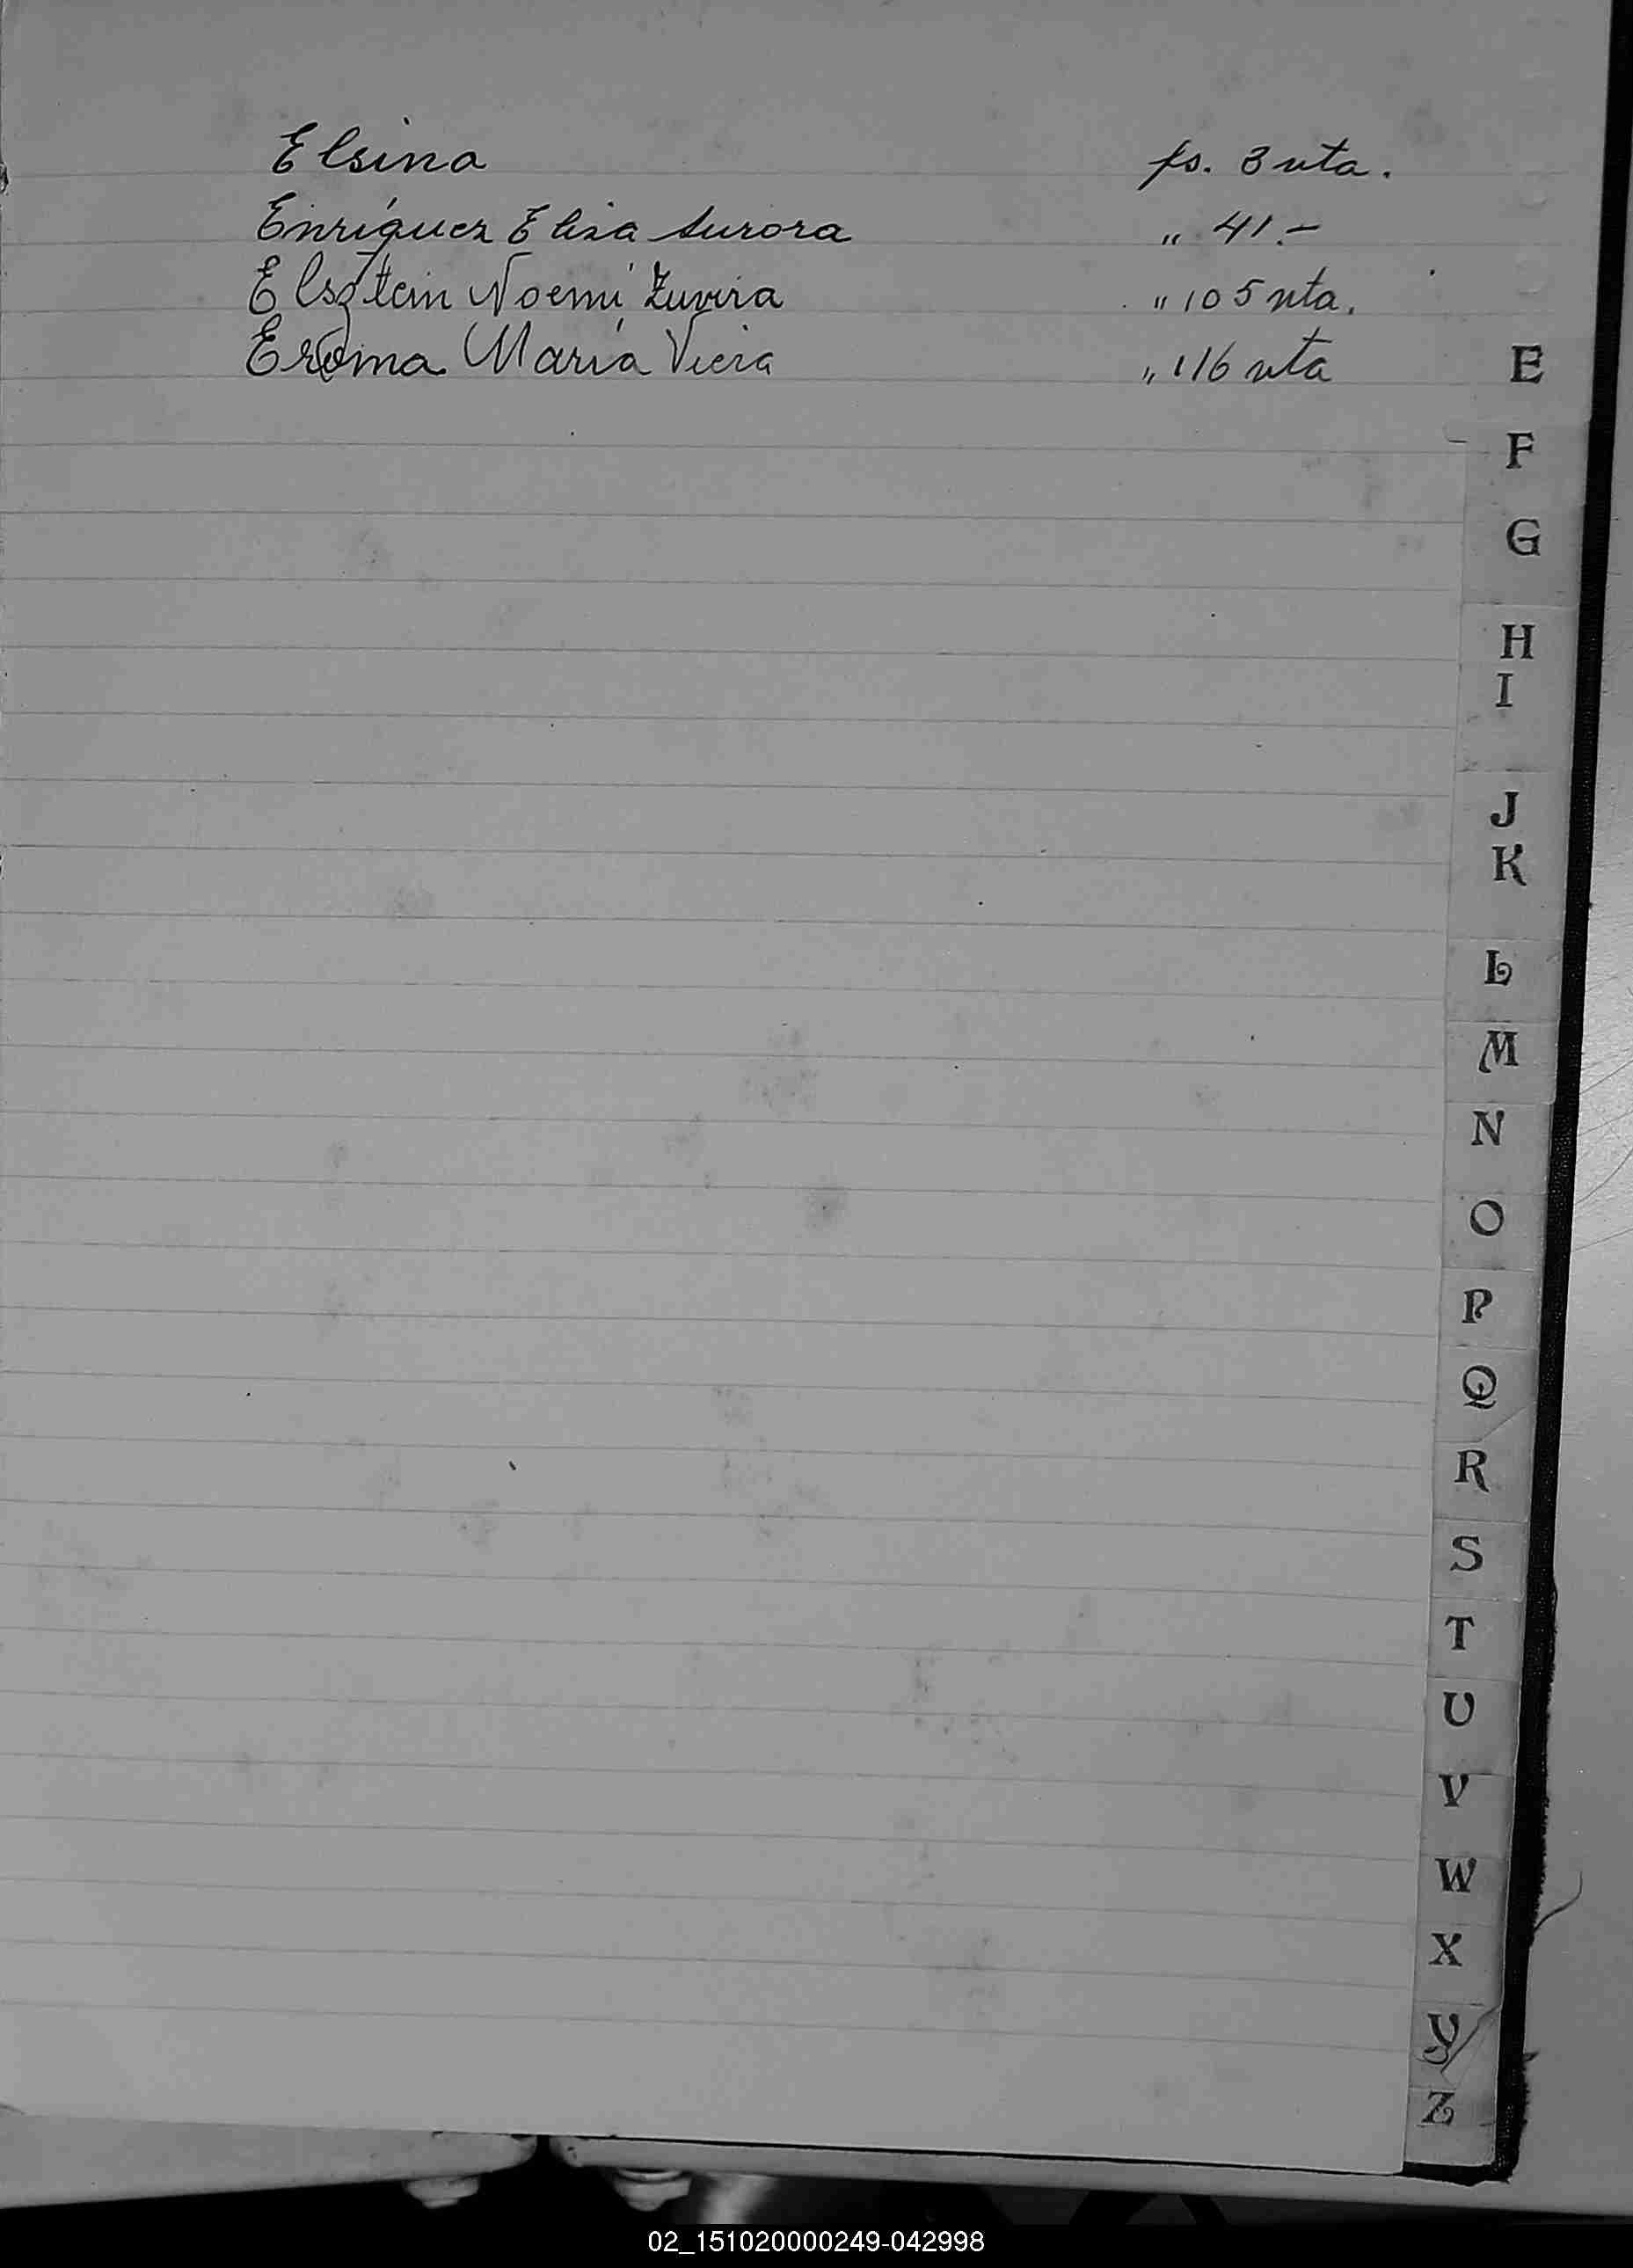 Elsina fs. 3 vta.
Enríquez Elisa Aurora " 41.-
Elsztein Noemí Zuvira " 105 vta.
Eroma María Viera " 116 vta
E
F
G
H
I
J
K
L
M
N
O
P
Q
R
S
T
U
V
W
X
Y
Z
02_151020000249-042998